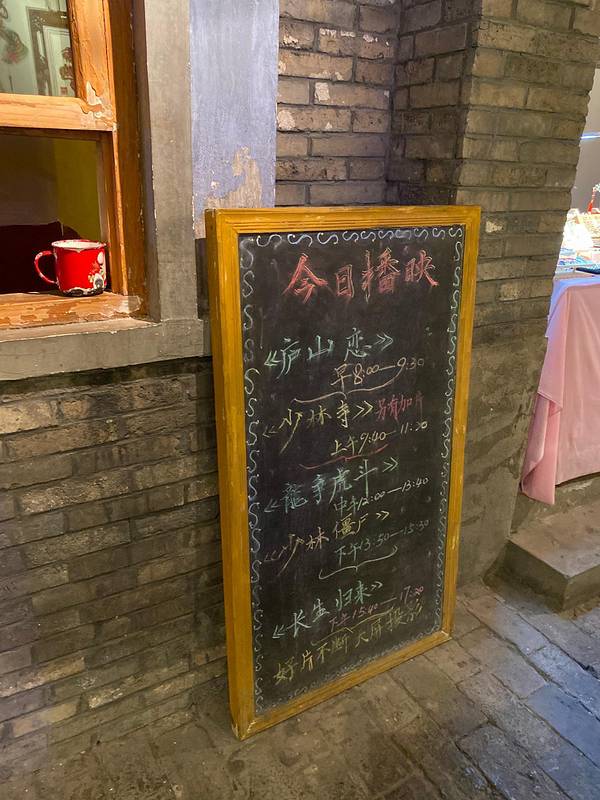 今日播映
《庐山恋》
早8:00—9:30
《少林寺》另有加片
上午9:40—11:20
《龍争虎斗》
中午12:00—13:40
《少林僵尸》
下午13:50—15:30
《长生归来》
下午15:40—17:20
好片不断 大屏投影